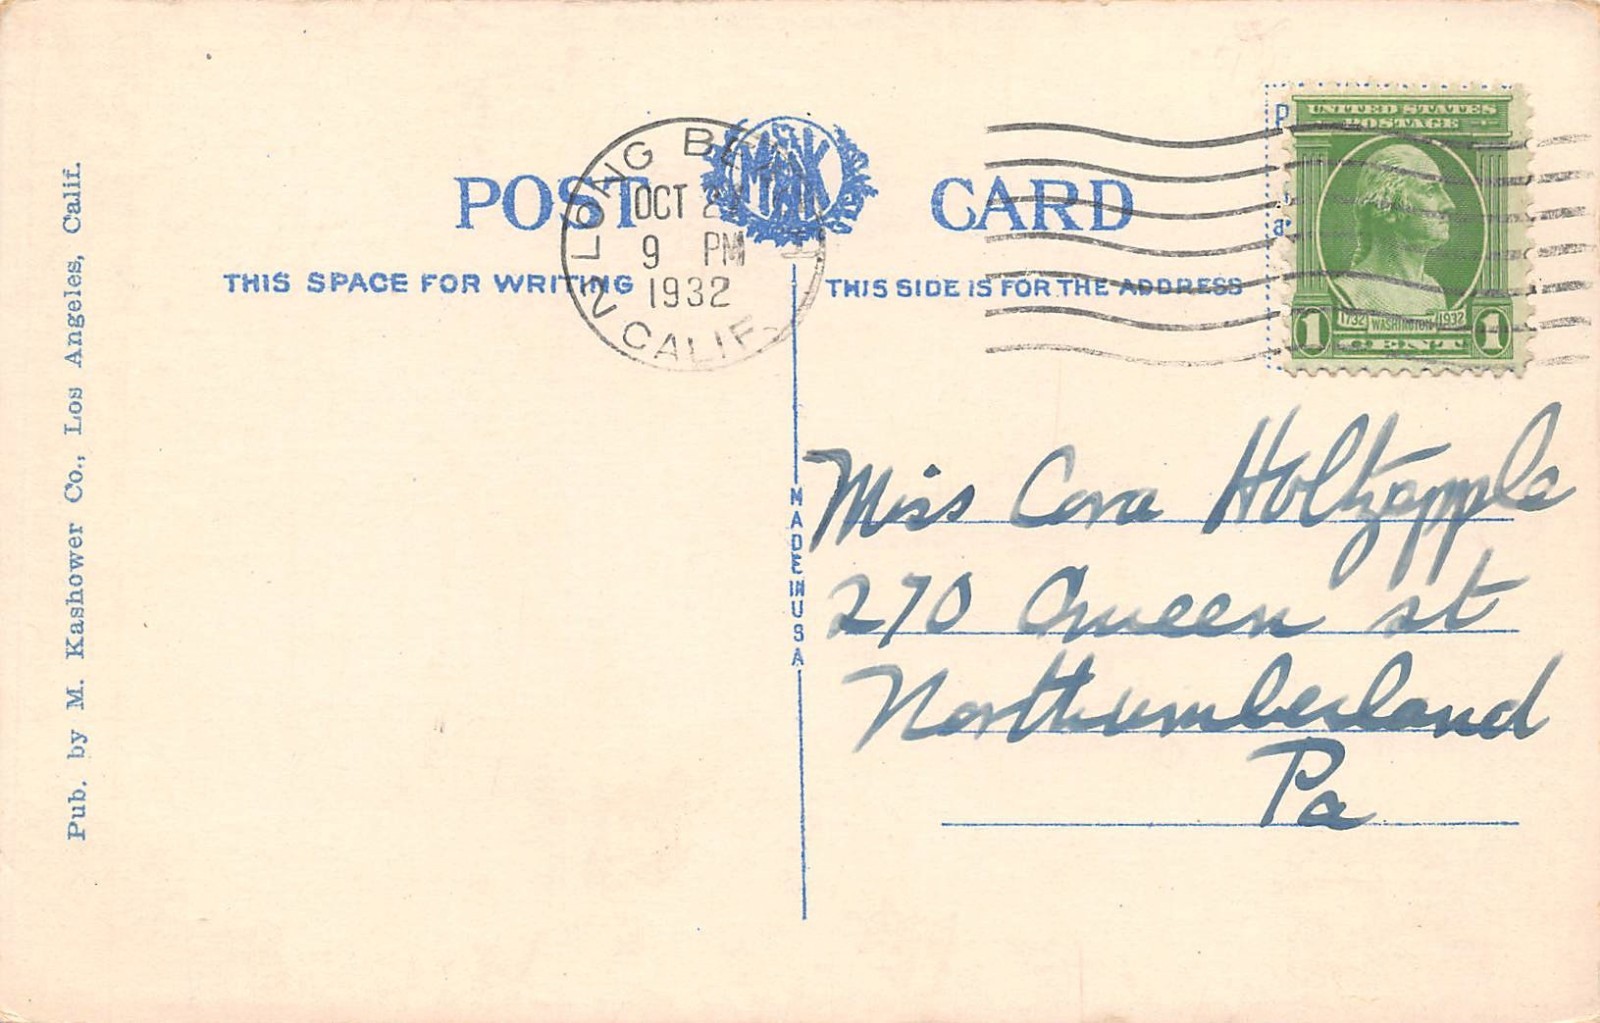 POST CARD
THIS SPACE FOR WRITING
THIS SIDE IS FOR THE ADDRESS
MAK
LONG BE
OCT 2
9 PM
1932
2 CALIF.
UNITED STATES
POSTAGE
1732 WASHINGTON 1932
1 CENT 1
Pub. by M. Kashower Co., Los Angeles, Calif.
MADE IN USA
Miss Cora Holtzapple
270 Queen st
Northumberland
Pa